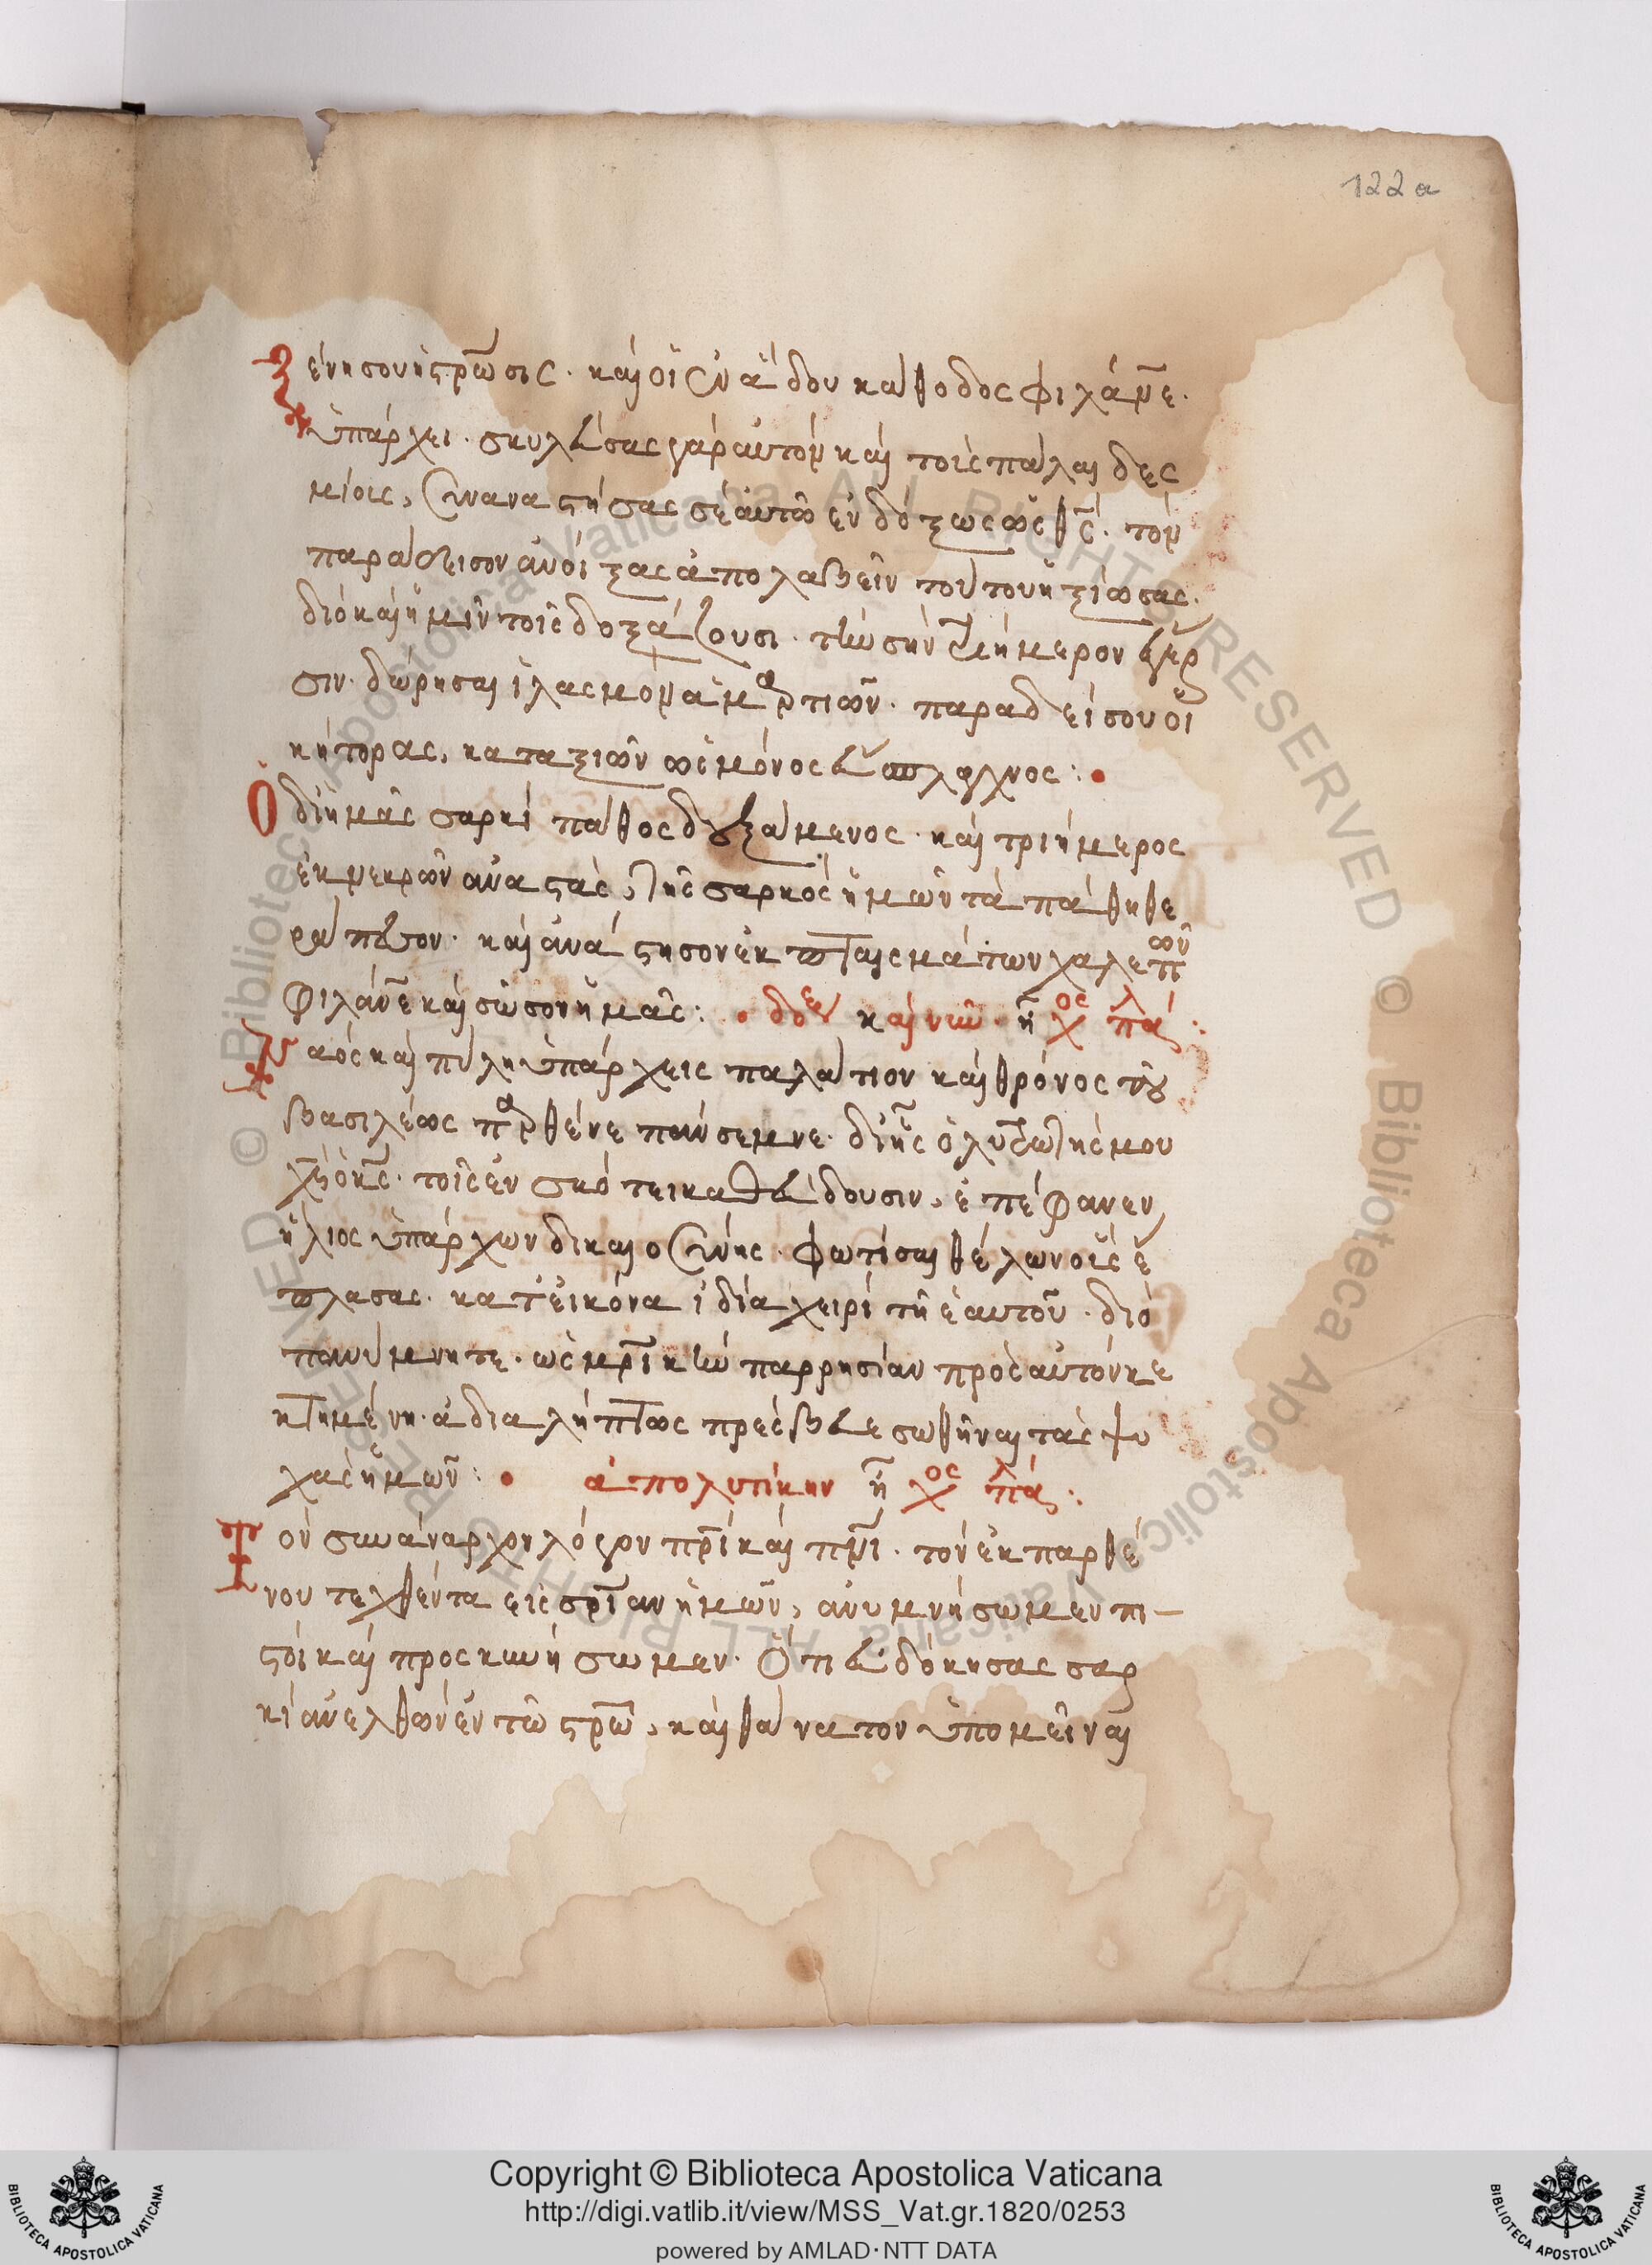 122a
Ξένη σου ἡ στρῶσις· καὶ οἱ ἐν ἅδου κάθοδος φιλάν̅ε·
ὑπάρχει· σκυλεύσας γὰρ αὐτὸν καὶ τοῖς πάλαι δες
μίοις, συναναστήσας σεαυτῶ ἐνδόξως ὡς θ̅ς· τὸν
παράδεισον ἀνοίξας ἀπολαβεῖν τούτου ἠξίωσας·
διὸ καὶ ἡμῖν τοῖς δοξάζουσι· τὴν σὴν τριήμερον ἔγερ
σιν· δώρησαι ἱλασμὸν ἁμαρτιῶν· παραδείσου οἰ
κήτορας, καταξιῶν ὡς μόνος εὔσπλαγχνος:
Ὁ δι' ἡμᾶς σαρκὶ πάθος δεξάμενος· καὶ τριήμερος
ἐκ νεκρῶν ἀναστὰς, τῆς σαρκὸς ἡμῶν τὰ πάθη θε
ράπευσον· καὶ ἀνάστησον ἐκ πταισμάτων χαλεπῶν
φιλάν̅ε καὶ σῶσον ἡμᾶς: δόξ καὶ νῦν· ἦχος πλά:
Ναὸς καὶ πύλη ὑπάρχεις παλάτιον καὶ θρόνος τοῦ
βασιλέως παρθένε πάνσεμνε· δι' ἧς ὁ λυτρωτής μου
χ̅ς ὁ κ̅ς· τοῖς ἐν σκότει καθεύδουσιν, ἐπέφανεν
ἥλιος ὑπάρχων δικαιοσύνης· φωτίσαι θέλων οἷς ἔ
πλασας· κατ' εἰκόνα ἰδία χειρὶ τῆ ἑαυτοῦ· διὸ
πανύμνητε· ὡς μ̅ρικὴν παρρησίαν πρὸς αὐτὸν κε
κτημένη· ἀδιαλήπτως πρέσβευε σωθῆναι τὰς ψυ
χὰς ἡμῶν: ἀπολυτίκην ἦχος πλά:
Τὸν συνάναρχον λόγον π̅ρὶ καὶ π̅νι· τὸν ἐκ παρθέ
νου τεχθέντα εἰς σ̅ρίαν ἡμῶν, ἀνυμνήσωμεν πι
στοὶ καὶ προσκυνήσωμεν· Ὅτι εὐδόκησας σαρ
κὶ ἀνελθὼν ἐν τῶ στρῶ, καὶ θάνατον ὑπομεῖναι
© Biblioteca Apostolica Vaticana ALL RIGHTS RESERVED © Biblioteca Apostolica Vaticana ALL RIGHTS RESERVED
Copyright © Biblioteca Apostolica Vaticana
http://digi.vatlib.it/view/MSS_Vat.gr.1820/0253
powered by AMLAD·NTT DATA
BIBLIOTECA APOSTOLICA VATICANA
BIBLIOTECA APOSTOLICA VATICANA